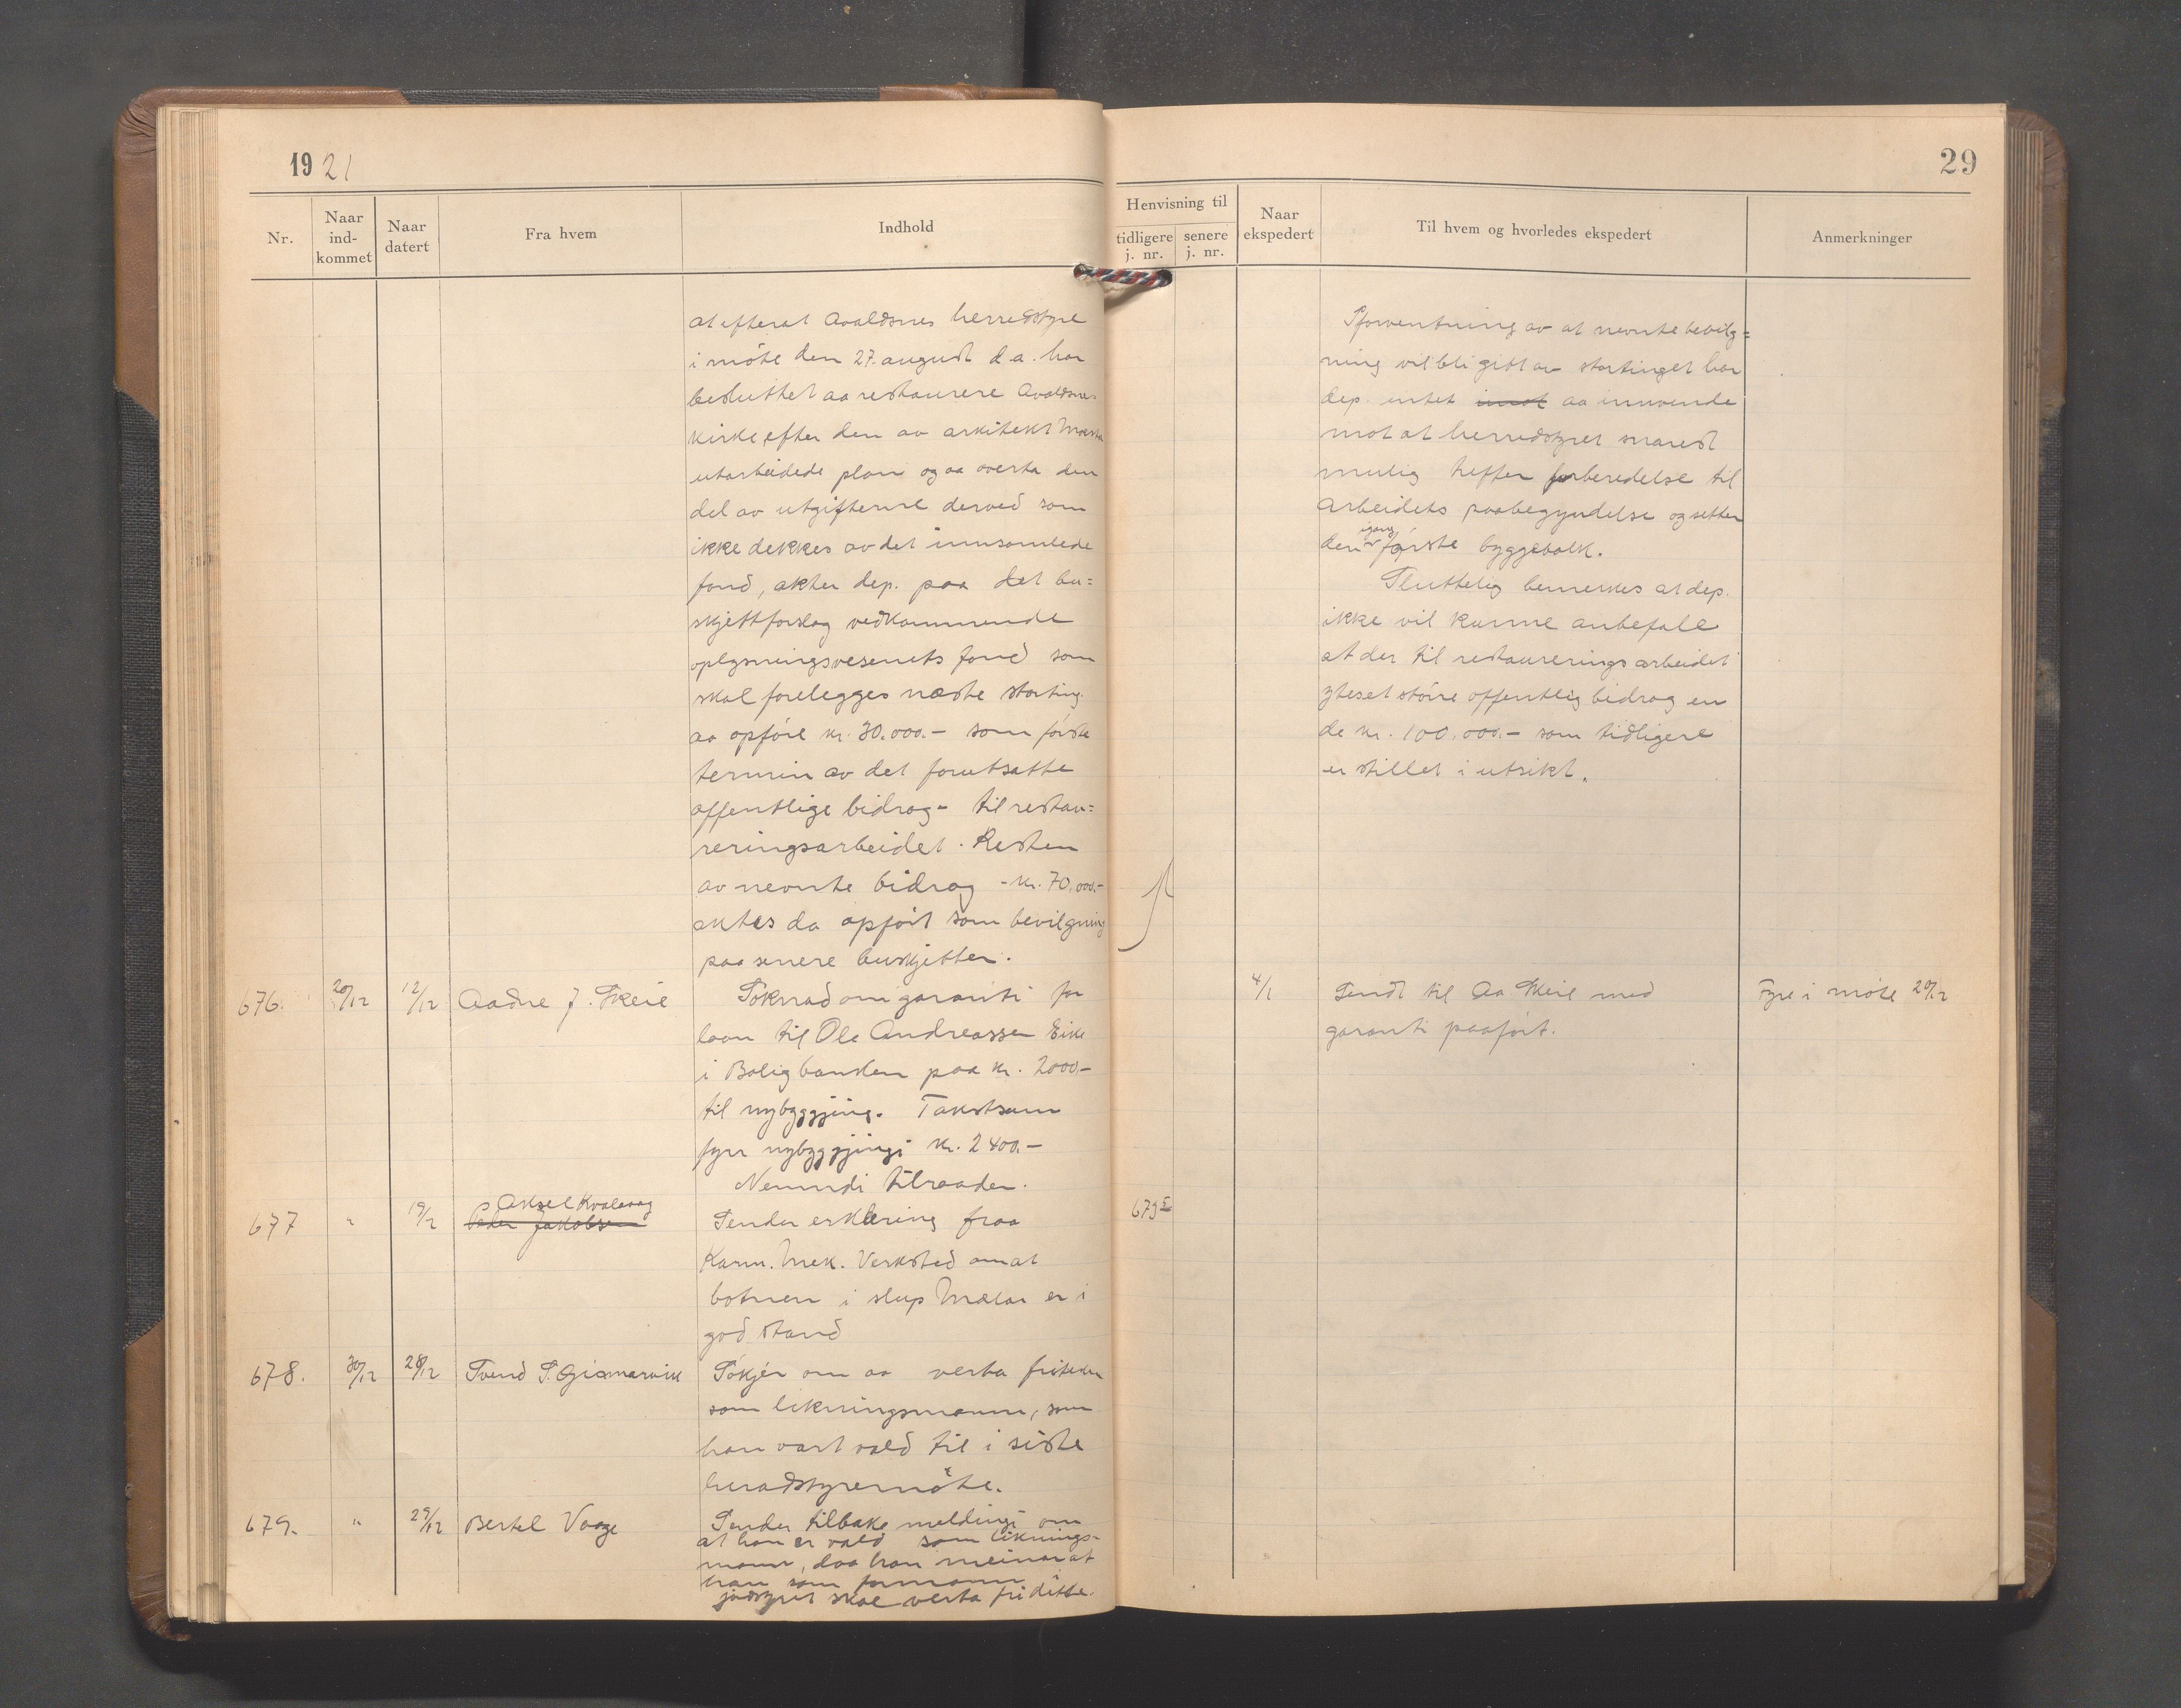 1921
29
Nr.
Naar ind-kommet
Naar datert
Fra hvem
Indhold
Henvisning til
tidligere j. nr.
senere j. nr.
Naar ekspedert
Til hvem og hvorledes ekspedert
Anmerkninger
at efterat Avaldsnes herredstyre
i möte den 27. august d.a. har
besluttet aa restaurere Avaldsnes
kirke efter den av arkitekt
utarbeidede plan og aa overta den
del av utgifterne derved som
ikke dekkes av det innsamlede
fond, akter dep. paa det bu=
skjettforslag vedkommende
oplysningsvesenets fond som
skal forelegges næste storting
aa opföre kr. 30.000.- som förste
termin av det forutsatte
offentlige bidrag - til restau=
reringsarbeidet. Resten
av nevnte bidrag - kr. 70.000.-
aktes da opfört som bevilgning
paa senere buskjetter.
I forventning av at nevnte bevilg=
ning vil bli gitt av stortinget har
dep. intet imot aa innvende
mot at herredstyret snarest
mulig treffer forberedelse til
arbeidets paabegyndelse og setter
igang
den förste byggebolk.
Sluttelig bemerkes at dep.
ikke vil kunne anbefale
at der til restaureringsarbeidet
ytes et större offentlig bidrag en
de kr. 100.000.- som tidligere
er stillet i utsikt.
676. 20/12 12/12 Aadne J. Skeie Söknad om garanti for
laan til Ole Andreassen Eike
i Boligbanken paa kr. 2000.-
til nybyggjing. Takstsum
fyrr nybyggjingi kr. 2400.-
Nemndi tilraader.
4/1 Sendt til Aa. Skeie med
garanti paafört.
Fyre i möte 29/12
677 " 19/12 Aksel Kvalavaag
Peder Jakobsen
Sender erklering fraa
Karm. Mek. Verksted om at
botnen i slup Mælar er i
god stand
675 I
678. 30/12 28/12 Svend S. Gismarvik Sökjer om aa verta friteken
som likningsmann, som
han vart vald til i siste
heradstyremöte.
679. " 29/12 Bertel Vaage Sender tilbake meldingi om
at han er vald som liknings-
mann, daa han meinar at
han som formann i
jordstyret skal verta fri dette.